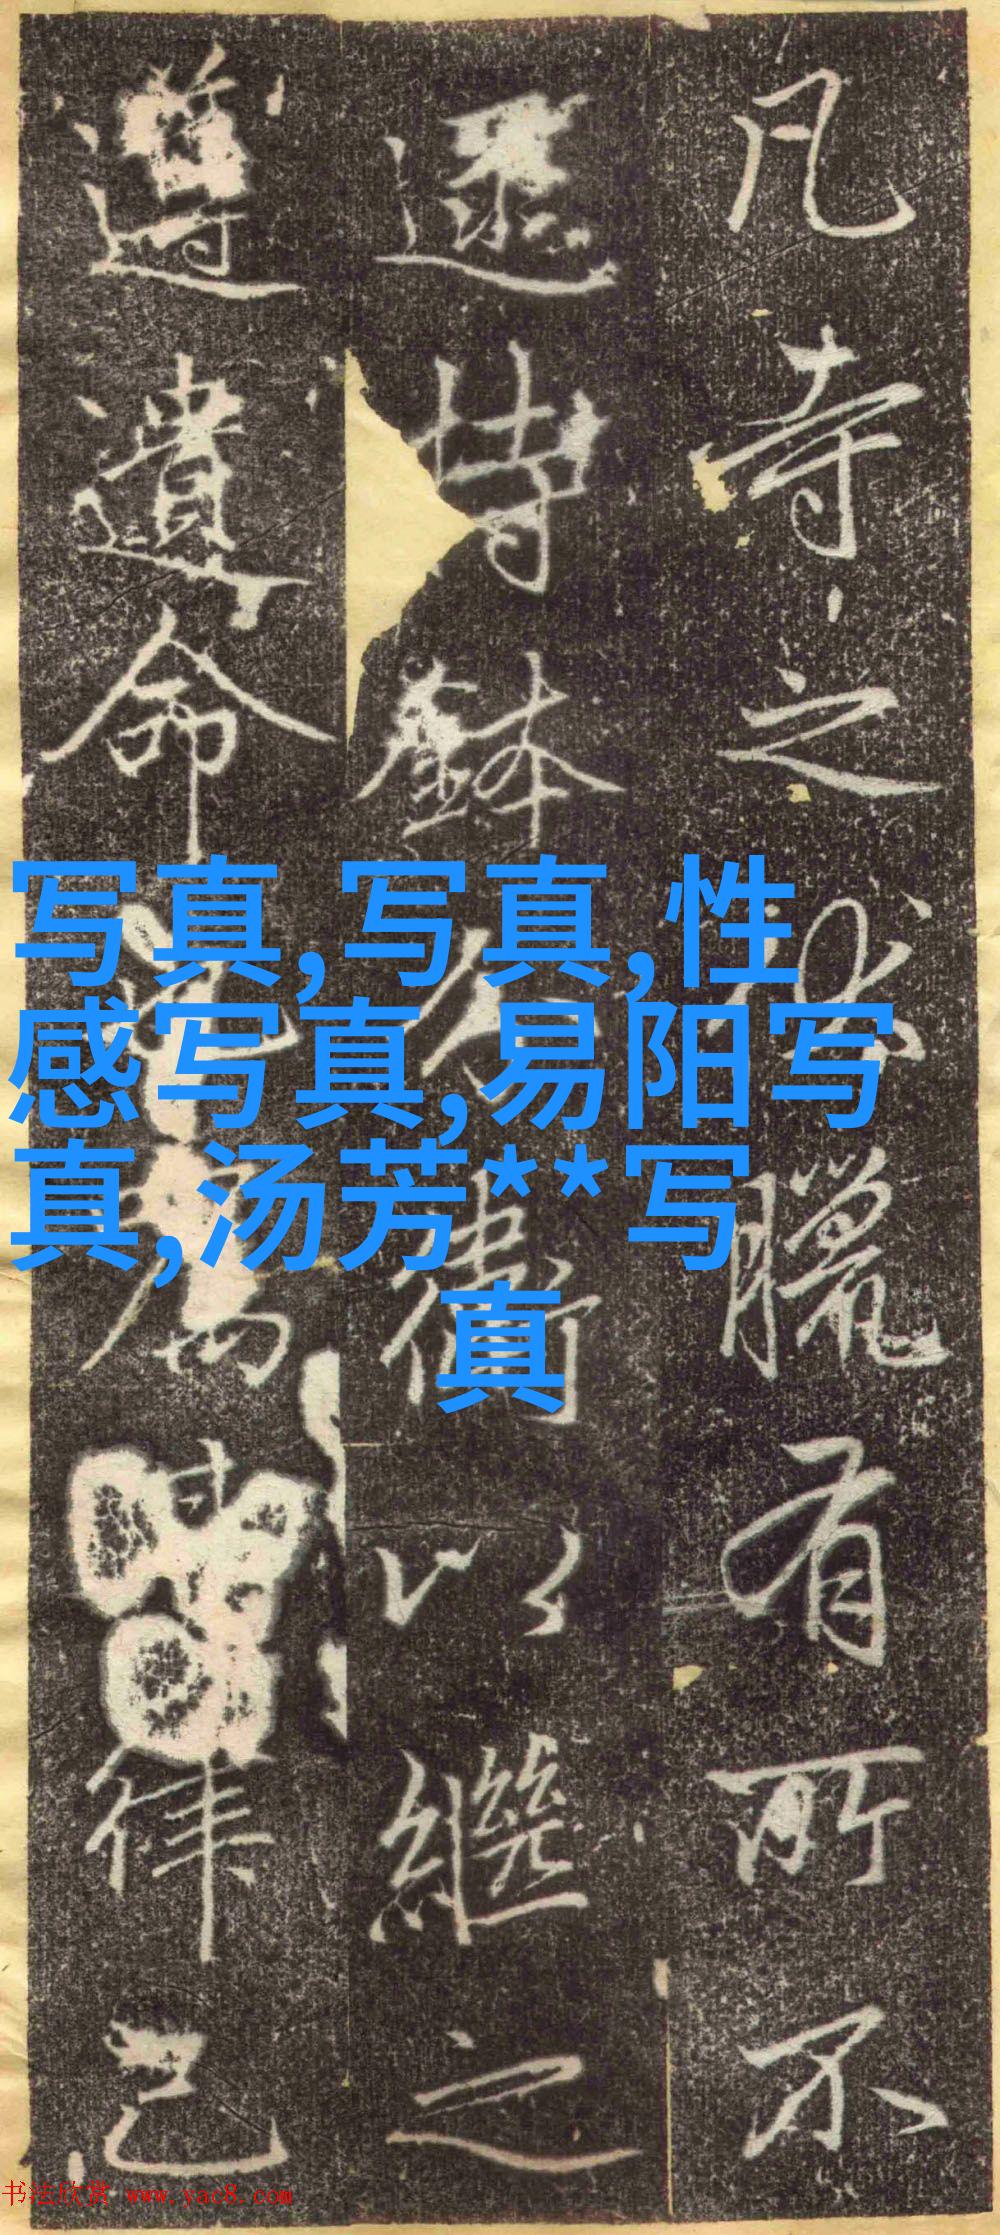 凡寺之
臘有所不
遝持鉢
衛以繼之
遵遺命
律己
写真,写真,性
感写真,易阳写
真,汤芳**写
真
书法欣赏 www.yac8.com